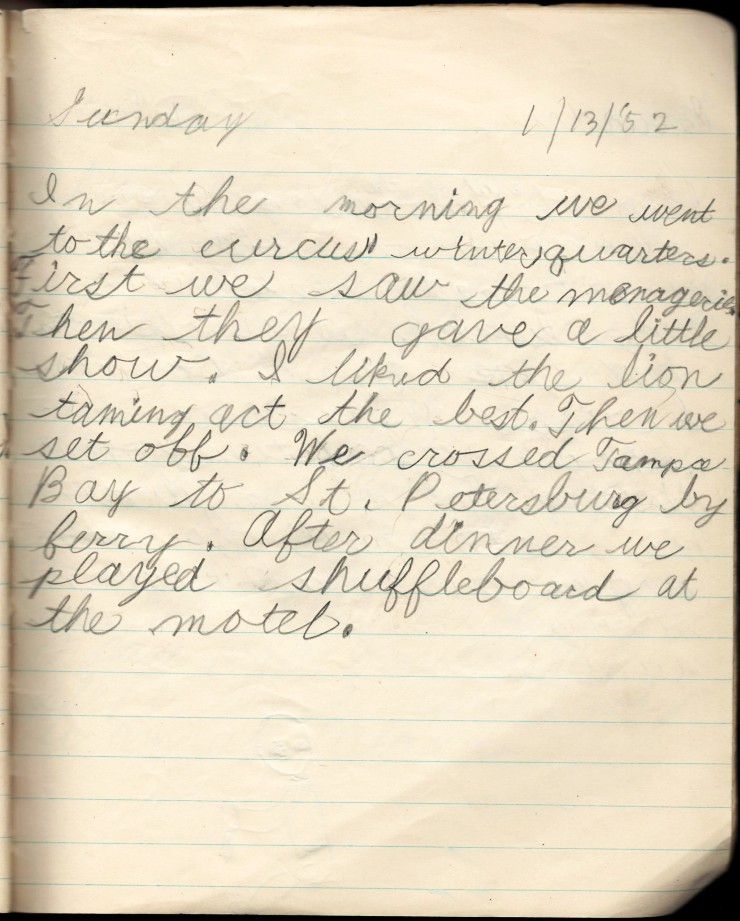 Sunday 1/13/52
In the morning we went
to the curcus' winter quarters.
First we saw the menagerie.
Then they gave a little
show. I liked the lion
taming act the best. Then we
set off. We crossed Tampa
Bay to St. Petersburg by
ferry. After dinner we
played shuffleboard at
the motel.